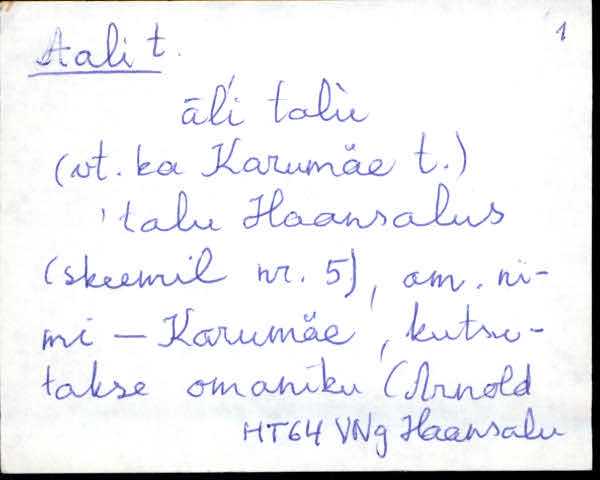 Aali t.
1
āĺi talu
(vt. ka Karumäe t.)
'talu Haansalus
(skeemil nr. 5), am. ni-
mi — Karumäe, kutsu-
takse omaniku (Arnold
HT64 VNg Haansalu